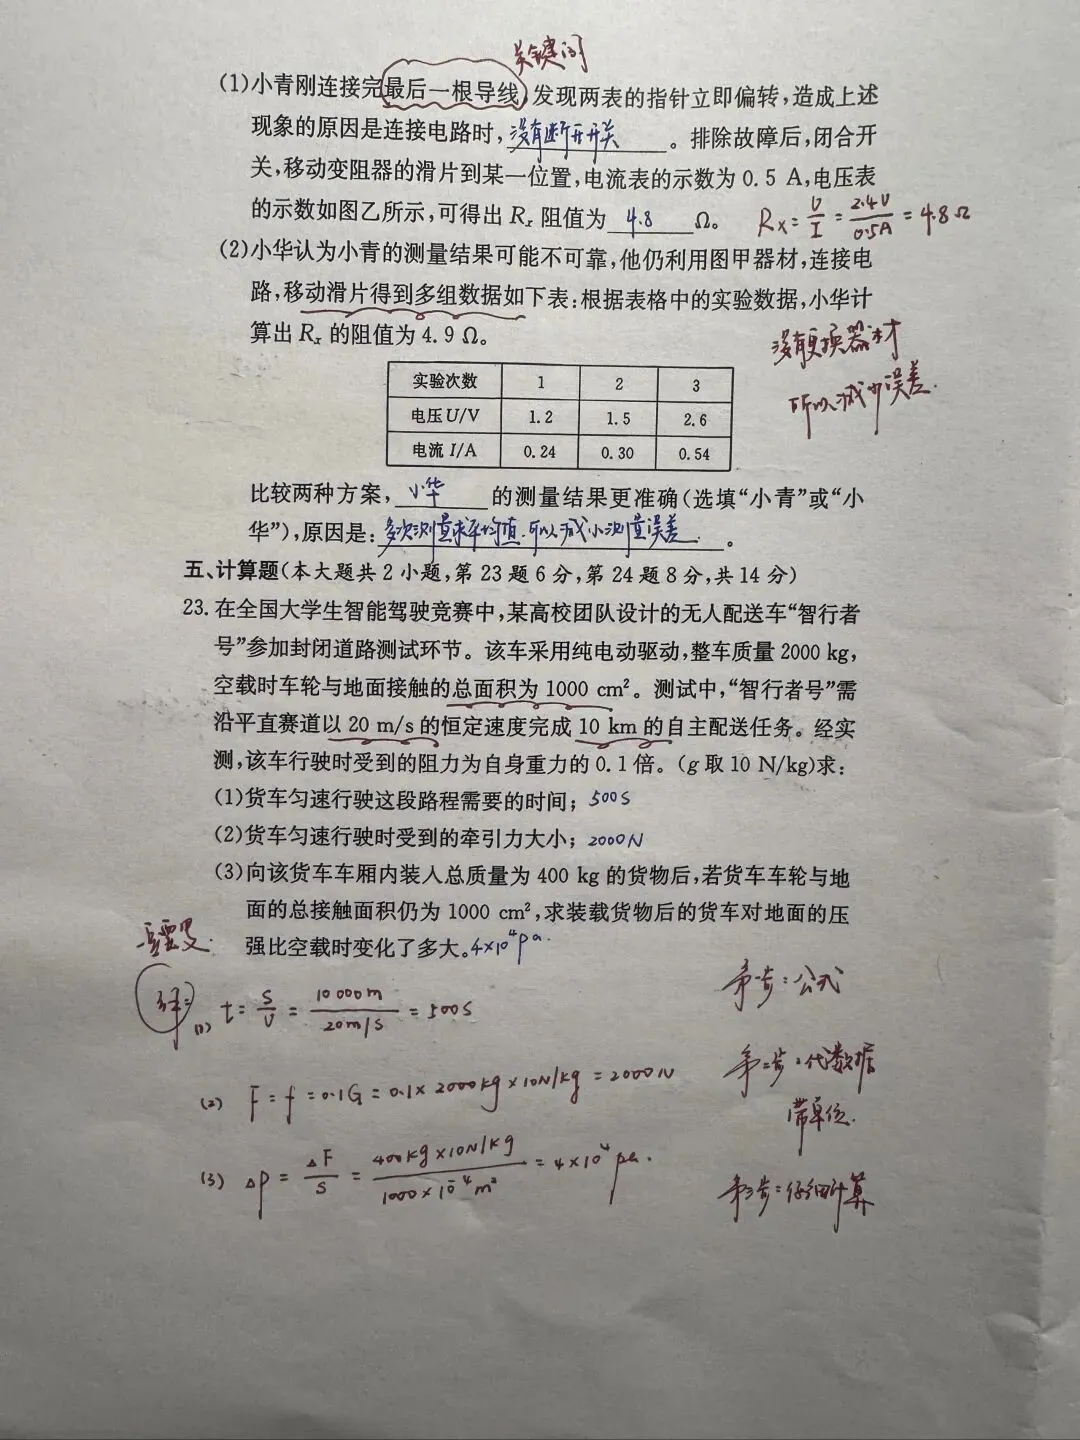 关键词
(1)小青刚连接完最后一根导线,发现两表的指针立即偏转,造成上述
现象的原因是连接电路时,没有断开开关。排除故障后,闭合开
关,移动变阻器的滑片到某一位置,电流表的示数为0.5 A,电压表
的示数如图乙所示,可得出Rₓ阻值为 4.8 Ω。 Rx=U/I=2.4V/0.5A=4.8Ω
(2)小华认为小青的测量结果可能不可靠,他仍利用图甲器材,连接电
路,移动滑片得到多组数据如下表:根据表格中的实验数据,小华计
算出Rₓ的阻值为4.9 Ω。
没有更换器材
所以减小误差.
实验次数 1 2 3
电压U/V 1.2 1.5 2.6
电流I/A 0.24 0.30 0.54
比较两种方案, 小华 的测量结果更准确(选填“小青”或“小
华”),原因是:多次测量求平均值.可以减小测量误差。
五、计算题(本大题共2小题,第23题6分,第24题8分,共14分)
23.在全国大学生智能驾驶竞赛中,某高校团队设计的无人配送车“智行者
号”参加封闭道路测试环节。该车采用纯电动驱动,整车质量2000 kg,
空载时车轮与地面接触的总面积为1000 cm²。测试中,“智行者号”需
沿平直赛道以20 m/s的恒定速度完成10 km的自主配送任务。经实
测,该车行驶时受到的阻力为自身重力的0.1倍。(g取10 N/kg)求:
(1)货车匀速行驶这段路程需要的时间; 500s
(2)货车匀速行驶时受到的牵引力大小; 2000N
(3)向该货车车厢内装入总质量为400 kg的货物后,若货车车轮与地
面的总接触面积仍为1000 cm²,求装载货物后的货车对地面的压
强比空载时变化了多大。4×10⁴pa.
解:
(1) t=S/V=10000m/20m/s=500S
第一步:公式
(2) F=f=0.1G=0.1×2000kg×10N/kg=2000N
第二步:代数据
带单位.
(3) △p=△F/S=400kg×10N/kg/1000×10⁻⁴m²=4×10⁴pa.
第3步:仔细计算